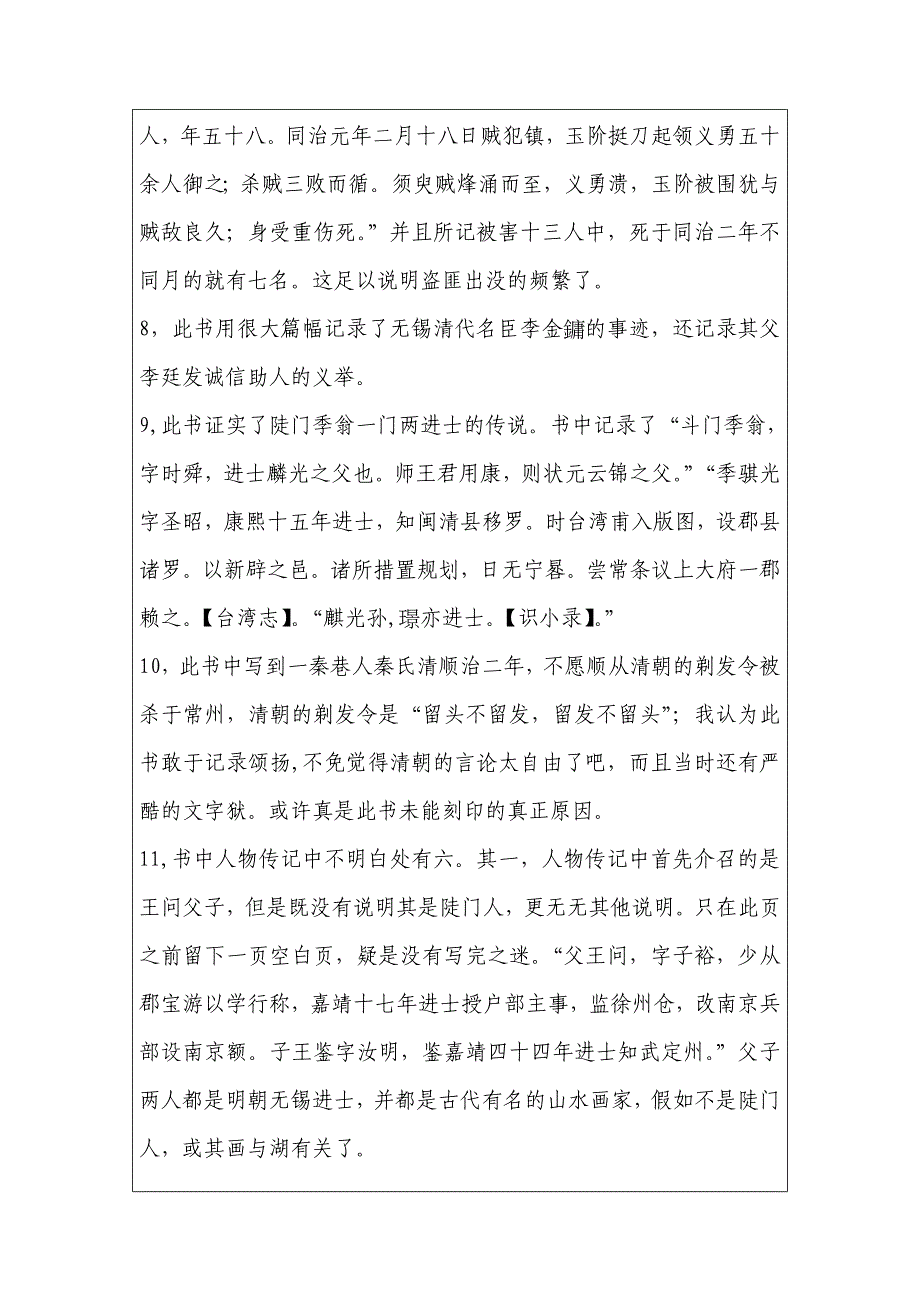 人，年五十八。同治元年二月十八日贼犯镇，玉阶挺刀起领义勇五十
余人御之；杀贼三败而循。须臾贼烽涌而至，义勇溃，玉阶被围犹与
贼敌良久；身受重伤死。”并且所记被害十三人中，死于同治二年不
同月的就有七名。这足以说明盗匪出没的频繁了。
8，此书用很大篇幅记录了无锡清代名臣李金鏞的事迹，还记录其父
李廷发诚信助人的义举。
9,此书证实了陡门季翁一门两进士的传说。书中记录了“斗门季翁，
字时舜，进士麟光之父也。师王君用康，则状元云锦之父。”“季骐光
字圣昭，康熙十五年进士，知闽清县移罗。时台湾甫入版图，设郡县
诸罗。以新辟之邑。诸所措置规划，日无宁晷。尝常条议上大府一郡
赖之。【台湾志】。“麒光孙,璟亦进士。【识小录】。”
10，此书中写到一秦巷人秦氏清顺治二年，不愿顺从清朝的剃发令被
杀于常州，清朝的剃发令是“留头不留发，留发不留头”；我认为此
书敢于记录颂扬,不免觉得清朝的言论太自由了吧，而且当时还有严
酷的文字狱。或许真是此书未能刻印的真正原因。
11,书中人物传记中不明白处有六。其一，人物传记中首先介召的是
王问父子，但是既没有说明其是陡门人，更无无其他说明。只在此页
之前留下一页空白页，疑是没有写完之迷。“父王问，字子裕，少从
郡宝游以学行称，嘉靖十七年进士授户部主事，监徐州仓，改南京兵
部设南京额。子王鉴字汝明，鉴嘉靖四十四年进士知武定州。”父子
两人都是明朝无锡进士，并都是古代有名的山水画家，假如不是陡门
人，或其画与湖有关了。